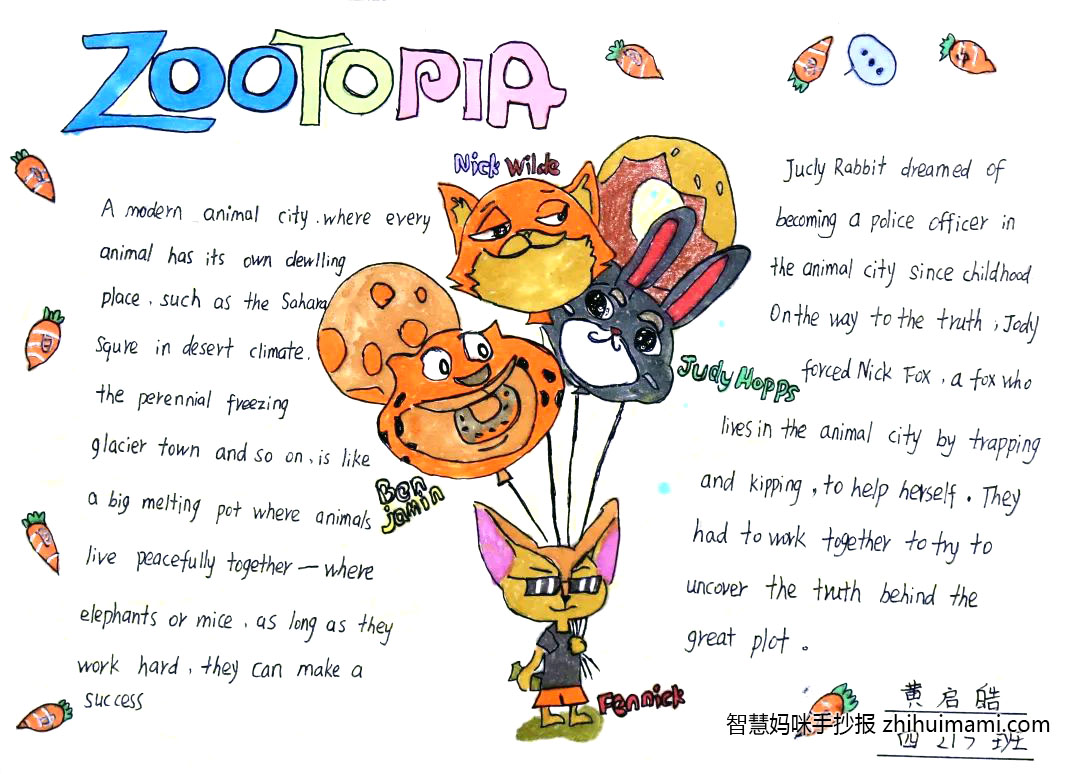 ZOOTOPIA
Nick Wilde
A modern animal city. where every
animal has its own dewlling
place, such as the Sahara
Squre in desert climate.
the perennial freezing
glacier town and so on, is like
a big melting pot where animals
live peacefully together — where
elephants or mice, as long as they
work hard, they can make a
success
Ben
jamin
Judy Hopps
Fennick
Jucly Rabbit dreamed of
becoming a police officer in
the animal city since childhood
On the way to the truth, Jody
forced Nick Fox, a fox who
lives in the animal city by trapping
and kipping, to help herself. They
had to work together to try to
uncover the truth behind the
great plot。
黄启皓
四〈1〉班
智慧妈咪手抄报 zhihuimami.com